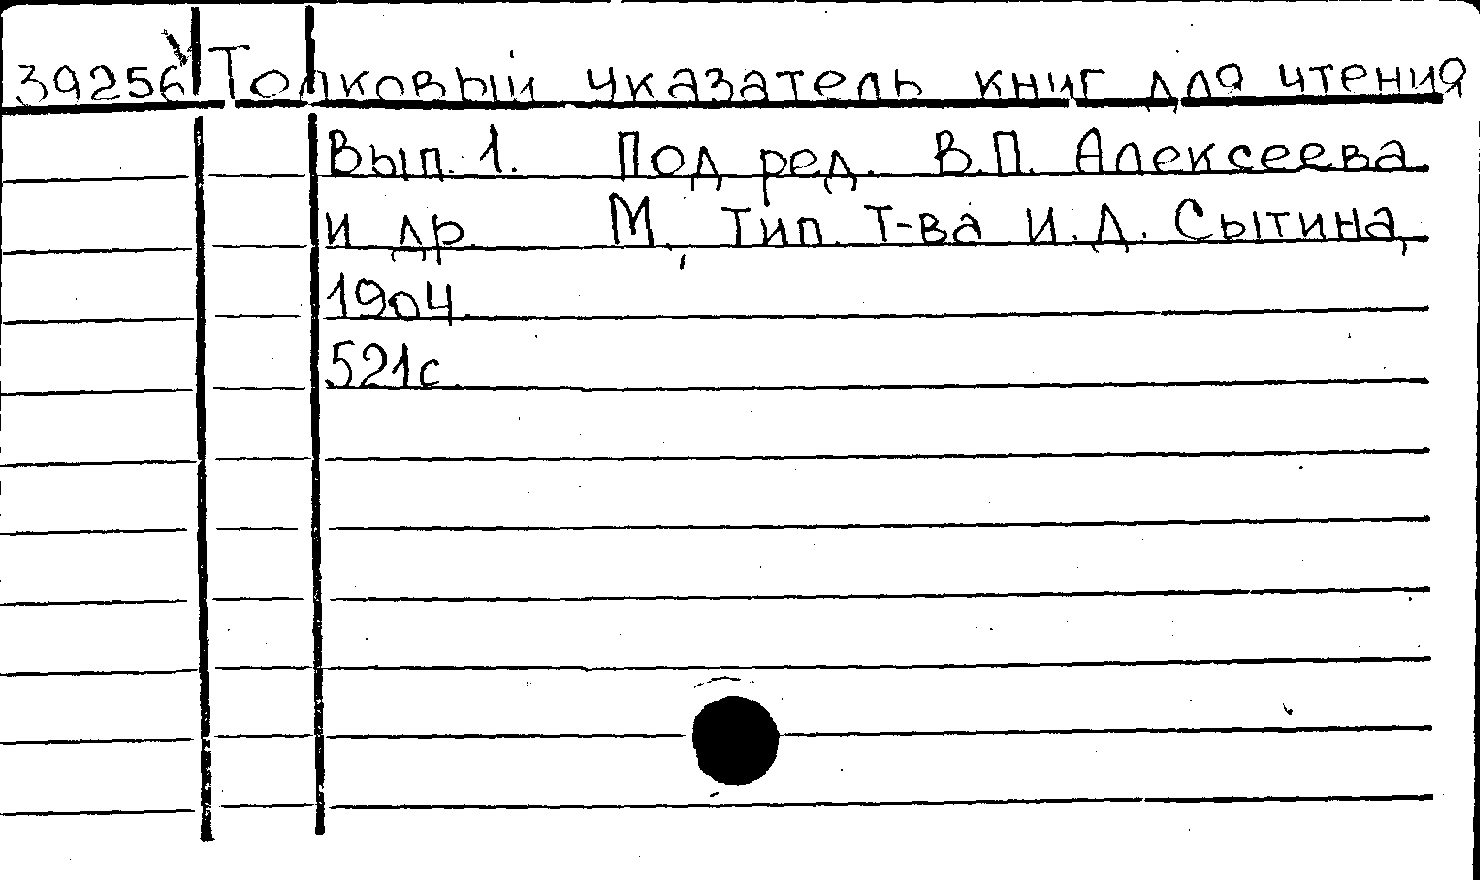 39256 Толковый указатель книг для чтения
Вып. 1. Под ред. В.П. Алексеева
и др. М., Тип. Т-ва И.Д. Сытина,
1904.
521с.